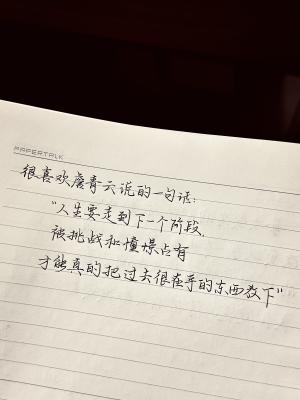 PAPERTALK
很喜欢詹青云说的一句话:
“人生要走到下一个阶段,
被挑战和憧憬占有
才能真的把过去很在乎的东西放下”